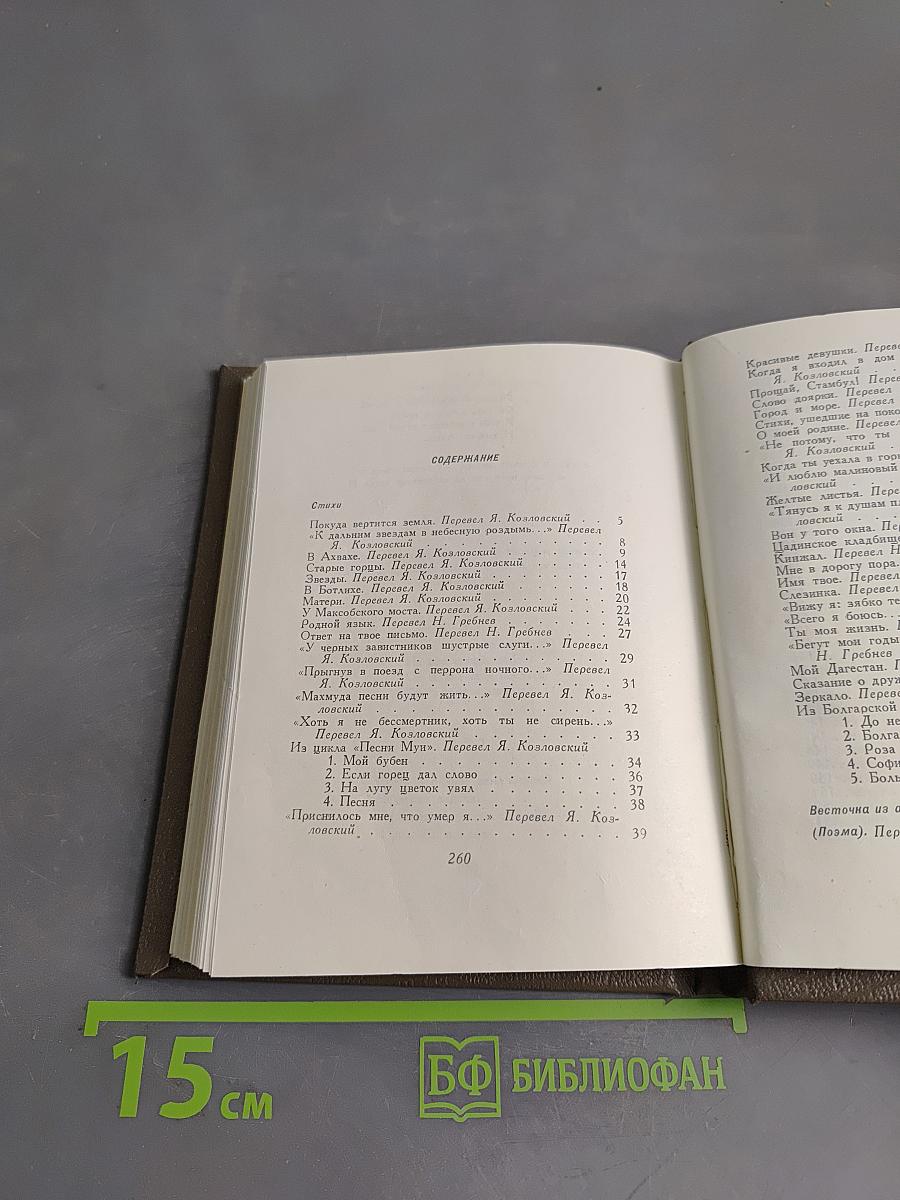 СОДЕРЖАНИЕ
Стихи
Покуда вертится земля. Перевел Я. Козловский . . 5
«К дальним звездам в небесную роздымь...» Перевел
Я. Козловский . . . . . . . . . . . . 8
В Ахвахе. Перевел Я. Козловский . . . . . . . 9
Старые горцы. Перевел Я. Козловский . . . . . 14
Звезды. Перевел Я. Козловский . . . . . . . . 17
В Ботлихе. Перевел Я. Козловский . . . . . . 18
Матери. Перевел Я. Козловский . . . . . . . . 20
У Максобского моста. Перевел Я. Козловский . . . 22
Родной язык. Перевел Н. Гребнев . . . . . . . 24
Ответ на твое письмо. Перевел Н. Гребнев . . . 27
«У черных завистников шустрые слуги...» Перевел
Я. Козловский . . . . . . . . . . . . . 29
«Прыгнув в поезд с перрона ночного...» Перевел
Я. Козловский . . . . . . . . . . . . . 31
«Махмуда песни будут жить...» Перевел Я. Коз-
ловский . . . . . . . . . . . . . . . 32
«Хоть я не бессмертник, хоть ты не сирень...»
Перевел Я. Козловский . . . . . . . . . 33
Из цикла «Песни Муи». Перевел Я. Козловский
1. Мой бубен . . . . . . . . . . . . . 34
2. Если горец дал слово . . . . . . . . . 36
3. На лугу цветок увял . . . . . . . . . 37
4. Песня . . . . . . . . . . . . . . . 38
«Приснилось мне, что умер я...» Перевел Я. Коз-
ловский . . . . . . . . . . . . . . . . 39
260
Красивые девушки. Перев
Когда я входил в дом
Я. Козловский .
Прощай, Стамбул! Перев
Слово доярки. Перевел
Город и море. Перевел
Стихи, ушедшие на поко
О моей родине. Перевел
«Не потому, что ты
Я. Козловский .
Когда ты уехала в гор
«И люблю малиновый
ловский . .
Желтые листья. Пере
«Тянусь я к душам пл
ловский . .
Вон у того окна. Пер
Цадинское кладбище
Кинжал. Перевел Н
Мне в дорогу пора.
Имя твое. Перевел
Слезинка. Перевел
«Вижу я: зябко те
«Всего я боюсь...
Ты моя жизнь.
«Бегут мои годы
Н. Гребнев
Мой Дагестан. П
Сказание о друж
Зеркало. Переве
Из Болгарской
1. До не
2. Болга
3. Роза
4. Софи
5. Боль
Весточка из а
(Поэма). Пер
15 см
БФ БИБЛИОФАН